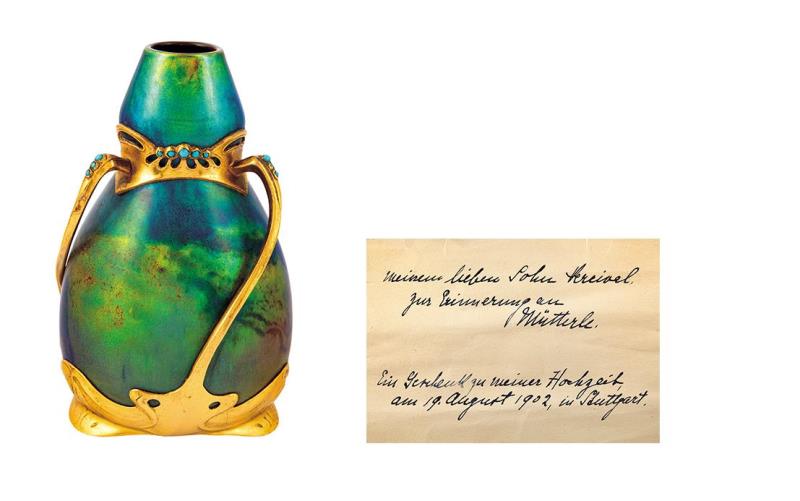 meinem lieben Sohn
zur Erinnerung an
Mütterle.
Ein Geschenk zu meiner Hochzeit,
am 19. August 1902, in Stuttgart.